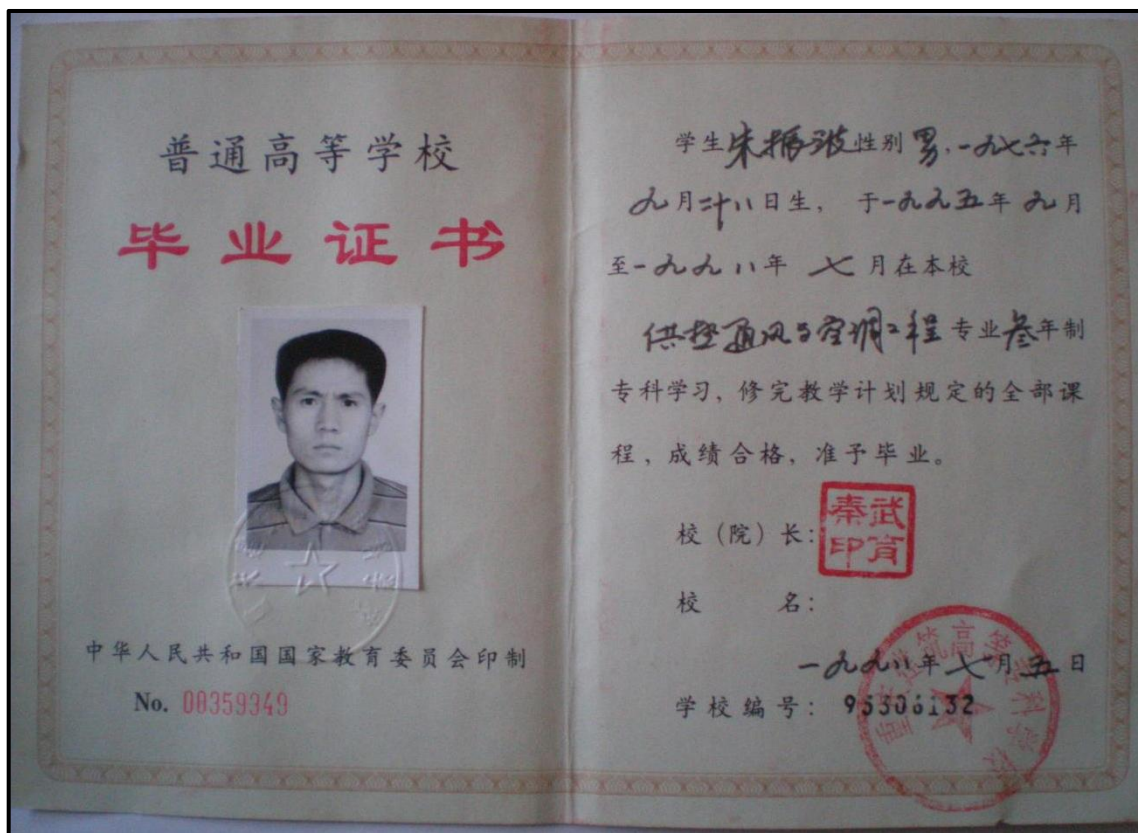 普通高等学校
毕业证书
中华人民共和国国家教育委员会印制
No. 00359349
学生宋振波性别男,一九七六年
九月二十八日生，于一九九五年九月
至一九九八年七月在本校
供热通风与空调工程专业叁年制
专科学习，修完教学计划规定的全部课
程，成绩合格，准予毕业。
校（院）长：
武育秦印
校名：
一九九八年七月五日
学校编号：
重庆建筑高等专科学校